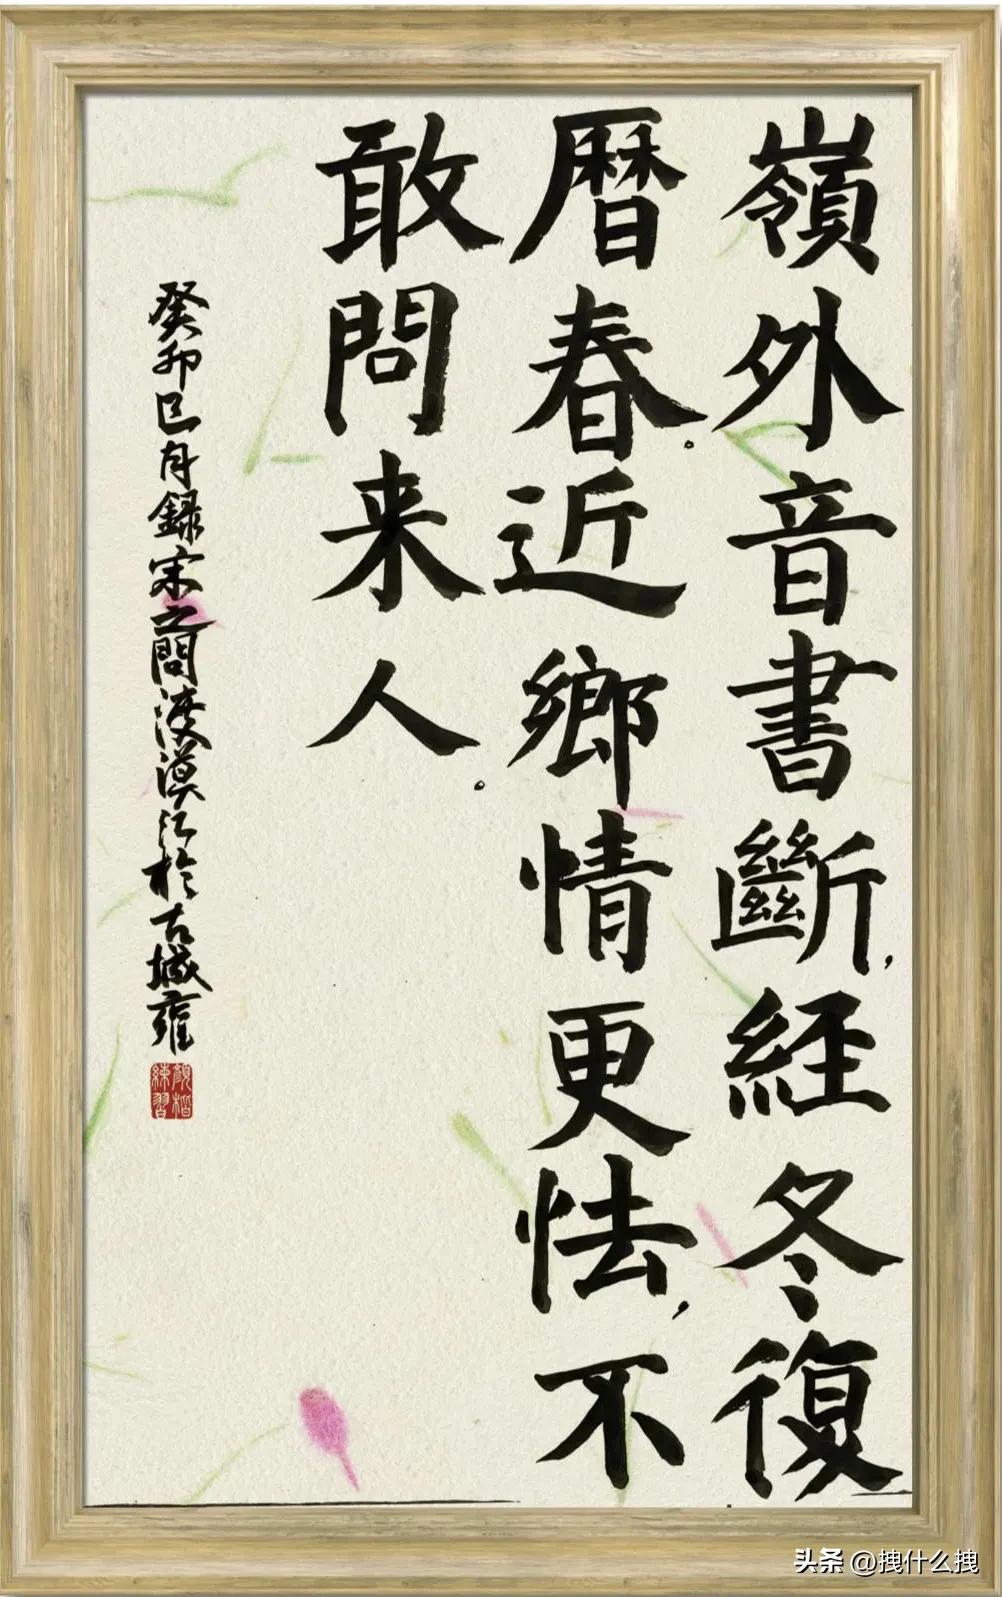 嶺外音書斷,經冬復
暦春。近鄉情更怯,不
敢問来人。
癸卯巳月録宋之問渡漢江於古城雍
顏楷練習
头条 @拽什么拽